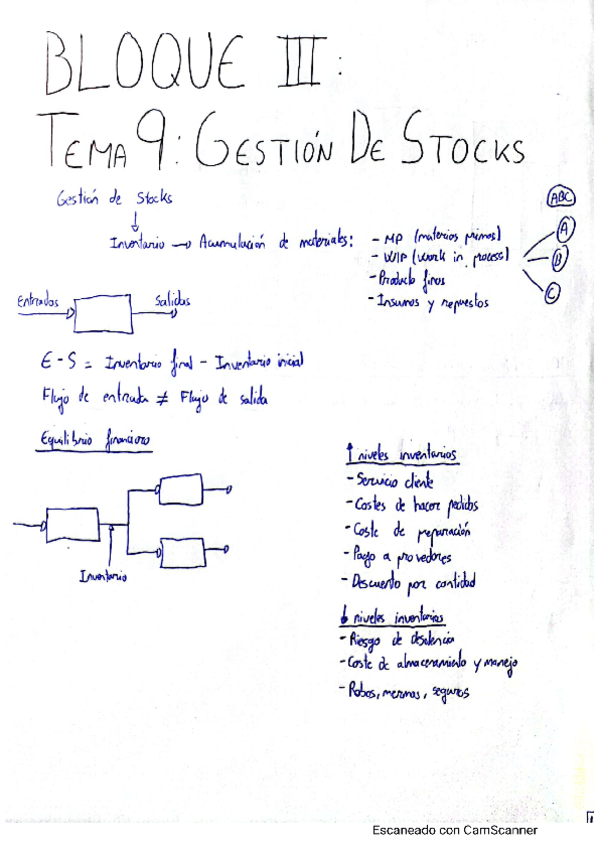 BLOQUE III:
TEMA 9: GESTIÓN DE STOCKS
Gestión de Stocks
Inventario → Acumulación de materiales:
- MP (materias primas)
- WIP (work in process)
- Producto finos
- Insumos y repuestos
ABC
A
B
C
Entradas
Salidas
E - S = Inventario final - Inventario inicial
Flujo de entrada ≠ Flujo de salida
Equilibrio financiero
Inventario
↑ niveles inventarios
- Servicio cliente
- Costes de hacer pedidos
- Coste de preparación
- Pago a provedores
- Descuento por cantidad
↓ niveles inventarios
- Riesgo de
- Coste de almacenamiento y manejo
- Robos, mermas, seguros
1
Escaneado con CamScanner